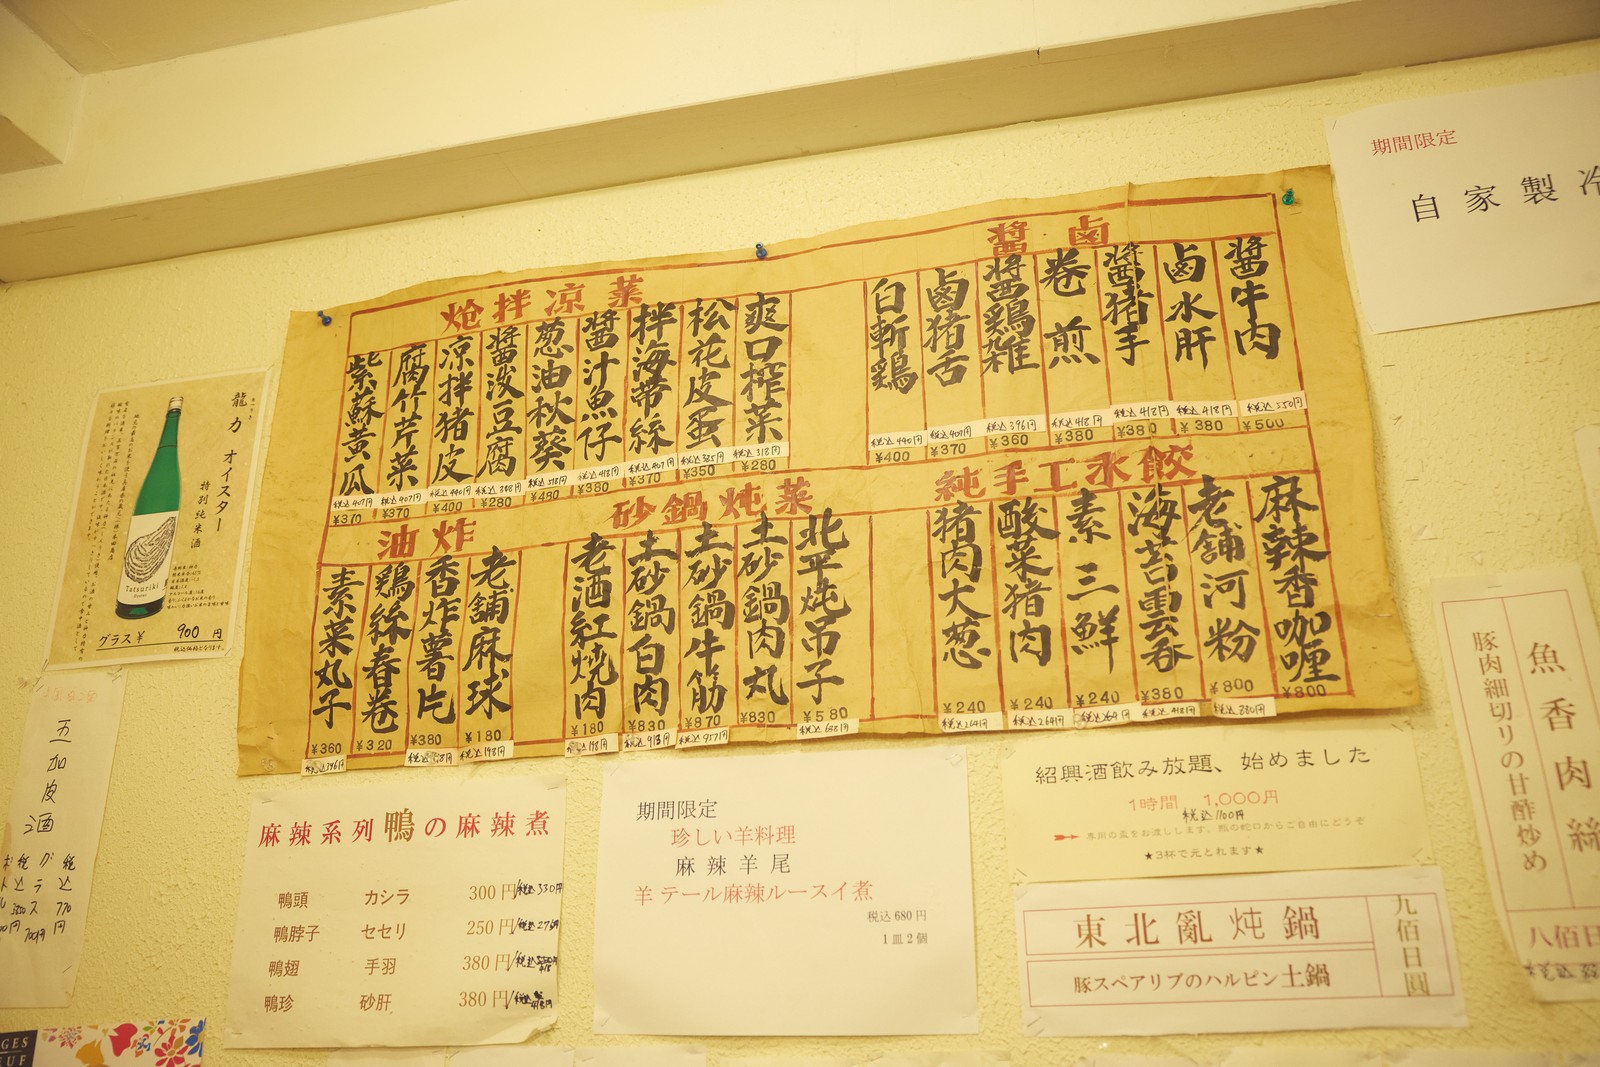 醤 鹵
醤牛肉
税込550円
¥500
鹵水肝
税込418円
¥380
醤猪手
税込418円
¥380
卷煎
税込418円
¥380
醤鶏雑
税込396円
¥360
鹵猪舌
税込407円
¥370
白斬鶏
税込440円
¥400
炝拌凉菜
爽口榨菜
税込318円
¥280
松花皮蛋
税込385円
¥350
拌海帯絲
税込407円
¥370
醤汁魚仔
税込418円
¥380
葱油秋葵
税込518円
¥480
醤泼豆腐
¥280
凉拌猪皮
税込440円
¥400
腐竹芹菜
税込407円
¥370
紫蘇黄瓜
税込407円
¥370
純手工水餃
麻辣香咖喱
¥800
老舗河粉
¥800
税込880円
海苔雲吞
¥380
税込418円
素三鮮
¥240
税込264円
酸菜猪肉
¥240
税込264円
猪肉大葱
¥240
税込264円
砂鍋炖菜
北平炖吊子
¥580
税込638円
土砂鍋肉丸
¥830
土砂鍋牛筋
¥870
税込957円
土砂鍋白肉
¥830
税込913円
老酒紅焼肉
¥180
税込198円
油炸
老舗麻球
¥180
税込198円
香炸薯片
¥380
鶏絲春卷
¥320
素菜丸子
¥360
税込396円
龍力 オイスター
特別純米酒
Tatsuriki
グラス¥ 900円
税込価格となります。
五加皮酒
期間限定
自家製冷
麻辣系列鴨の麻辣煮
鴨頭 カシラ 300円/税込330円
鴨脖子 セセリ 250円/税込276円
鴨翅 手羽 380円
鴨珍 砂肝 380円
期間限定
珍しい羊料理
麻辣羊尾
羊テール麻辣ルースイ煮
税込680円
1皿2個
紹興酒飲み放題、始めました
1時間 1,000円
税込1100円
専用の盃をお渡しします。甁の蛇口からご自由にどうぞ
★3杯で元とれます★
東北亂炖鍋
豚スペアリブのハルピン土鍋
九佰日圓
魚香肉絲
豚肉細切りの甘酢炒め
八佰日